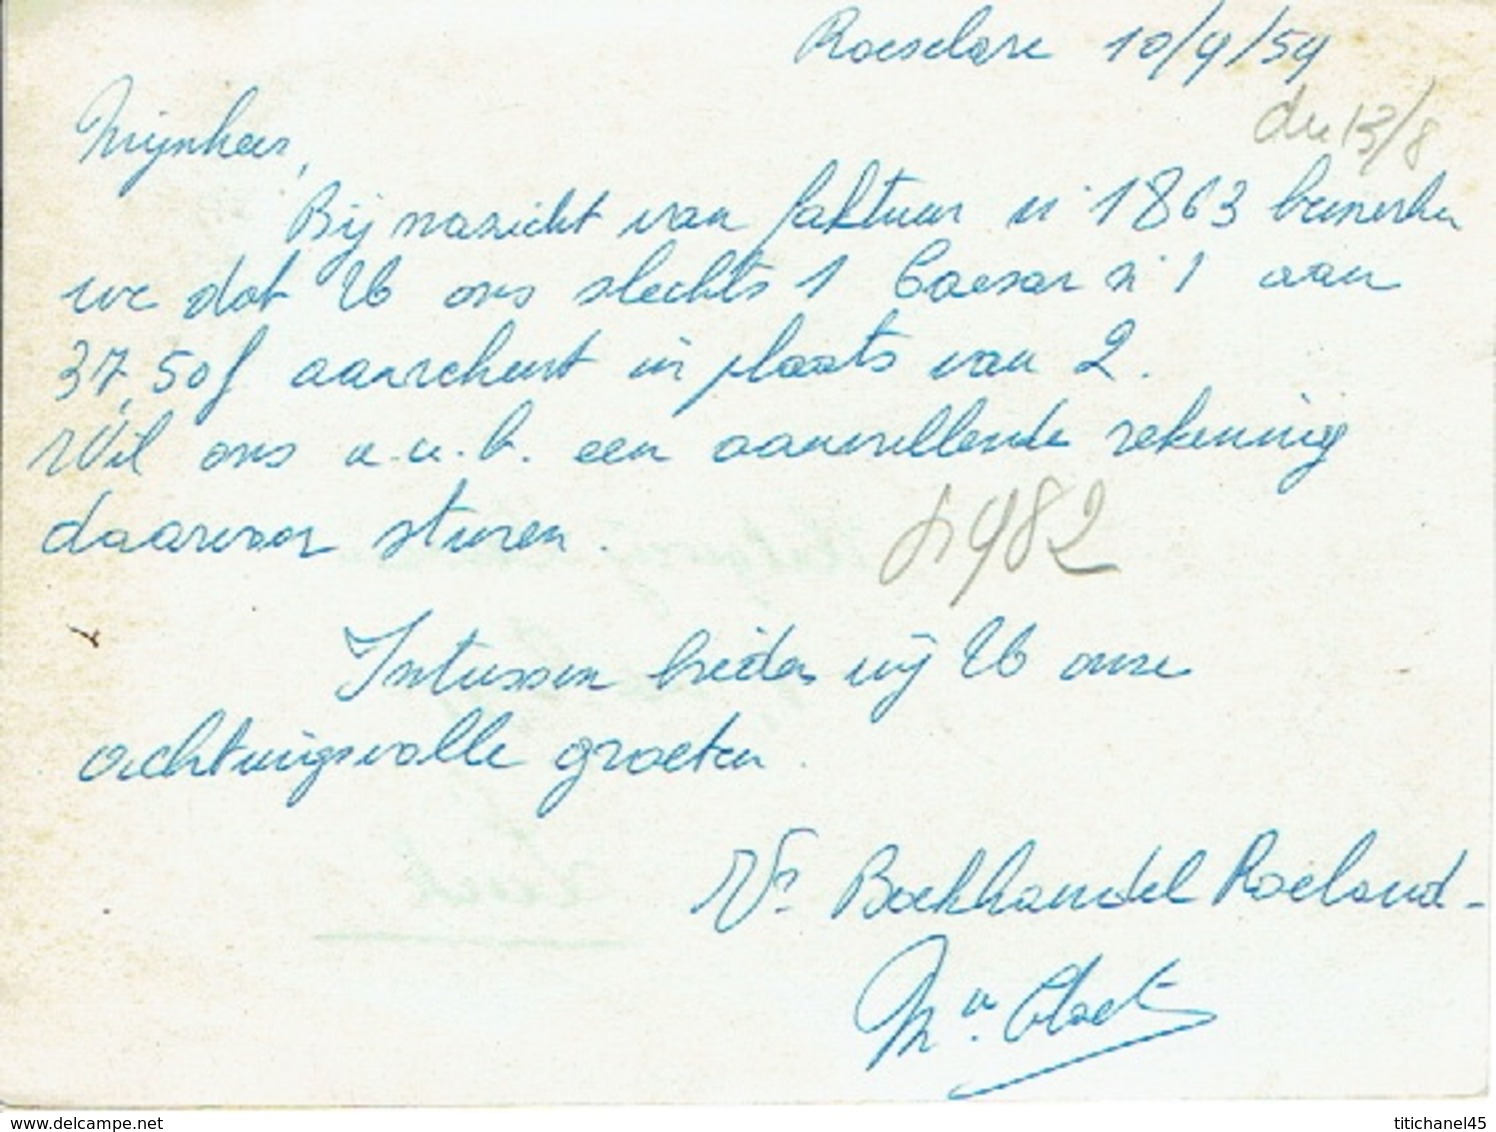 Roeselare 10/9/59
du 13/8
Mijnheer,
Bij nazicht van faktuur nr 1863 bemerken
we dat U ons slechts 1 Caesar nr 1 aan
37,50f aanrekent in plaats van 2.
Wil ons a.u.b. een aanvullende rekening
daarvoor sturen.
1982
Intussen bieden wij U onze
achtingsvolle groeten.
Vr Boekhandel Roeland-
www.delcampe.net
titichanel45